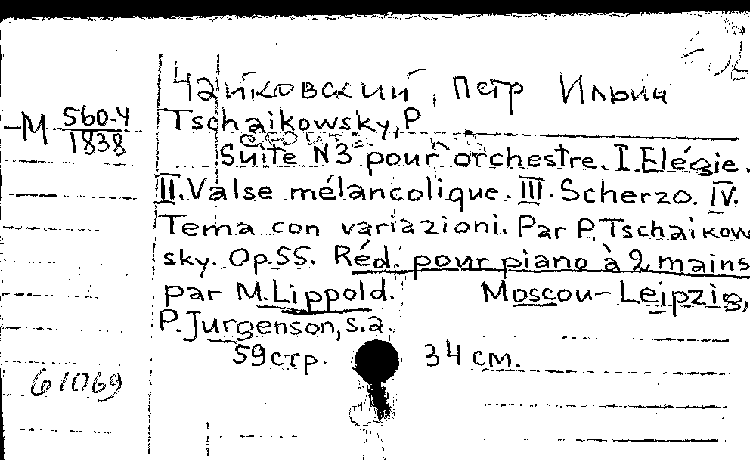 Чайковский, Петр Ильич
M 560-4
1838
Tschaikowsky, P
Suite N3 pour orchestre. I. Elégie.
II. Valse mélancolique. III. Scherzo. IV.
Tema con variazioni. Par P. Tschaikow
sky. Op. 55. Réd. pour piano à 2 mains
par M. Lippold. Moscou-Leipzig,
P. Jurgenson, s.a.
59 стр. 34 см.
61069